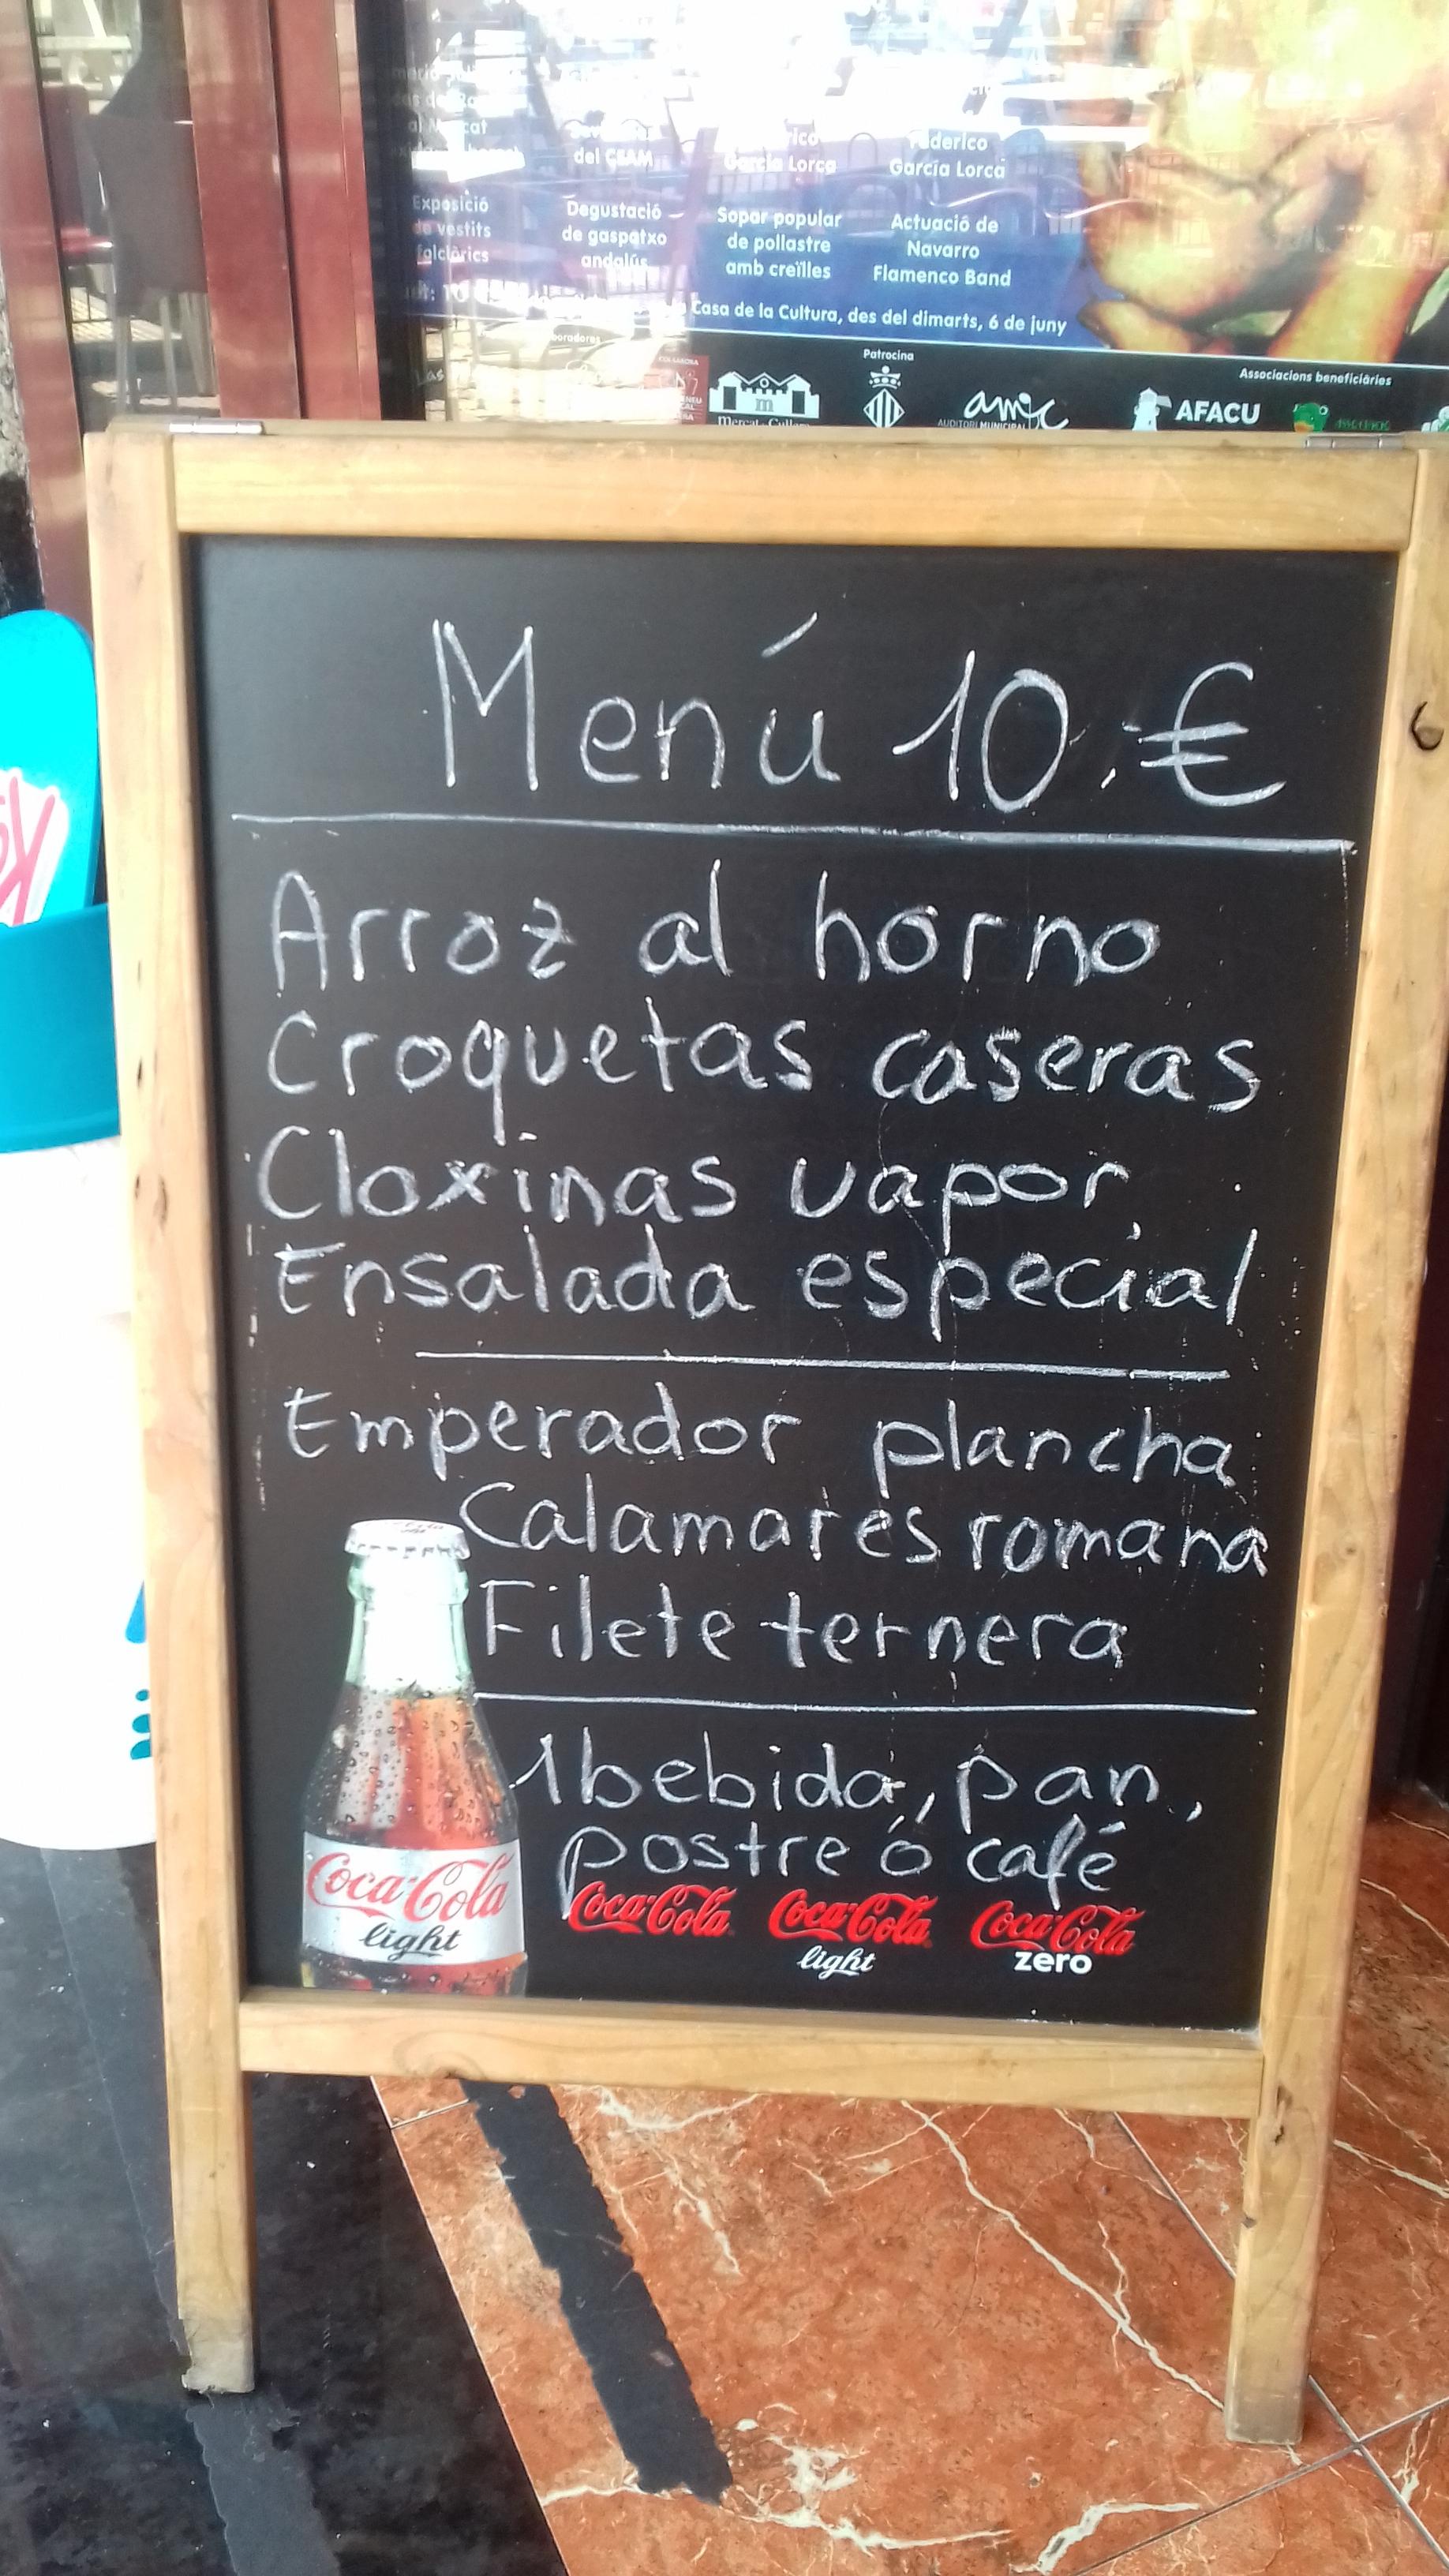 al Mercat
del CEAM
García Lorca
Federico
García Lorca
Exposició
de vestits
folclòrics
Degustació
de gaspatxo
andalús
Sopar popular
de pollastre
amb creïlles
Actuació de
Navarro
Flamenco Band
Casa de la Cultura, des del dimarts, 6 de juny
Patrocina
Associacions beneficiàries
m
amic
AUDITORI MUNICIPAL
AFACU
Menú 10.€
Arroz al horno
Croquetas caseras
Cloxinas vapor
Ensalada especial
Emperador plancha
Calamares romana
Filete ternera
1 bebida, pan,
postre ó café
Coca-Cola
light
Coca-Cola
Coca-Cola
light
Coca-Cola
zero